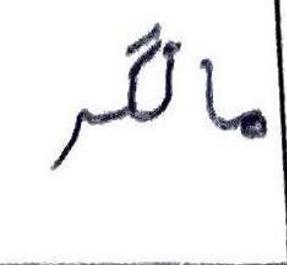 مالگر